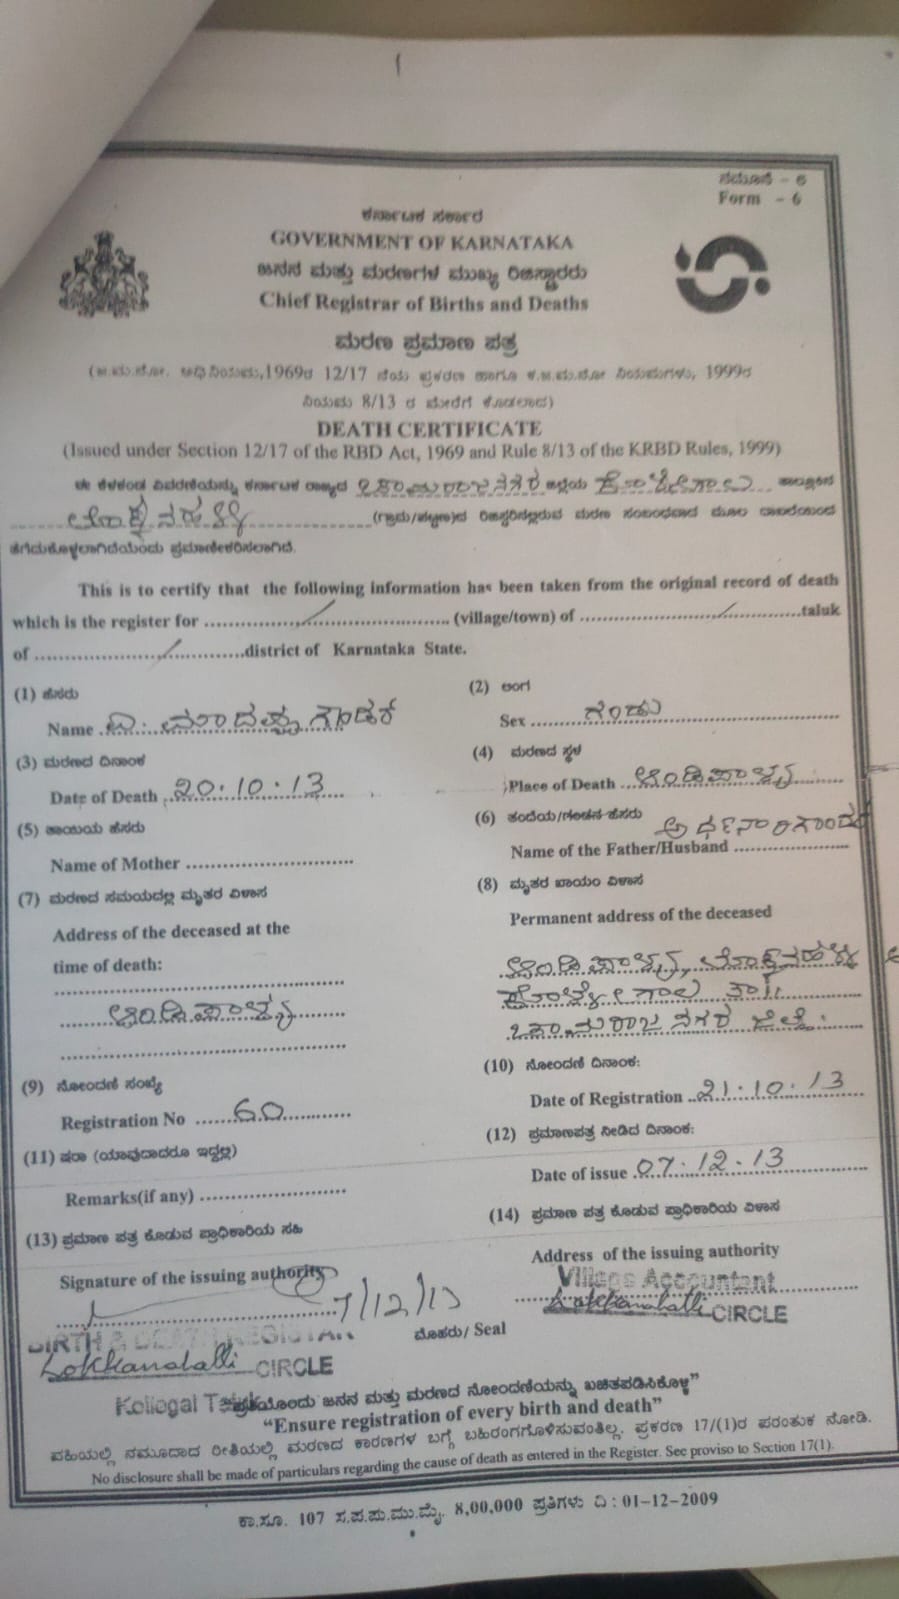 ನಮೂನೆ - 6
Form - 6
ಕರ್ನಾಟಕ ಸರ್ಕಾರ
GOVERNMENT OF KARNATAKA
ಜನನ ಮತ್ತು ಮರಣಗಳ ಮುಖ್ಯ ರಿಜಿಸ್ಟ್ರಾರರು
Chief Registrar of Births and Deaths
ಮರಣ ಪ್ರಮಾಣ ಪತ್ರ
(ಜ.ಮ.ನೋ. ಅಧಿನಿಯಮ,1969ರ 12/17 ನೆಯ ಪ್ರಕರಣ ಹಾಗೂ ಕ.ಜ.ಮ.ನೋ ನಿಯಮಗಳು, 1999ರ
ನಿಯಮ 8/13 ರ ಮೇರೆಗೆ ಕೊಡಲಾದ)
DEATH CERTIFICATE
(Issued under Section 12/17 of the RBD Act, 1969 and Rule 8/13 of the KRBD Rules, 1999)
ಈ ಕೆಳಕಂಡ ವಿವರಣೆಯನ್ನು ಕರ್ನಾಟಕ ರಾಜ್ಯದ ಚಾಮರಾಜನಗರ ಜಿಲ್ಲೆಯ ಕೊಳ್ಳೇಗಾಲ ತಾಲ್ಲೂಕಿನ
ಲೊಕ್ಕನಹಳ್ಳಿ (ಗ್ರಾಮ/ಪಟ್ಟಣ)ದ ರಿಜಿಸ್ಟರಿನಲ್ಲಿರುವ ಮರಣ ಸಂಬಂಧವಾದ ಮೂಲ ದಾಖಲೆಯಿಂದ
ತೆಗೆದುಕೊಳ್ಳಲಾಗಿದೆಯೆಂದು ಪ್ರಮಾಣೀಕರಿಸಲಾಗಿದೆ.
This is to certify that the following information has been taken from the original record of death
which is the register for .................... (village/town) of ....................taluk
of ....................district of Karnataka State.
(1) ಹೆಸರು
Name ಮಾದಪ್ಪಗೌಡರ
(2) ಲಿಂಗ
Sex ಗಂಡು
(3) ಮರಣದ ದಿನಾಂಕ
Date of Death 20.10.13
(4) ಮರಣದ ಸ್ಥಳ
Place of Death ಆಂಡಿಪಾಳ್ಯ
(5) ತಾಯಿಯ ಹೆಸರು
Name of Mother ....................
(6) ತಂದೆಯ/ಗಂಡನ ಹೆಸರು
Name of the Father/Husband ಅರ್ಧನಾರಿಗೌಂಡರ
(7) ಮರಣದ ಸಮಯದಲ್ಲಿ ಮೃತರ ವಿಳಾಸ
Address of the deceased at the
time of death:
ಆಂಡಿಪಾಳ್ಯ
(8) ಮೃತರ ಖಾಯಂ ವಿಳಾಸ
Permanent address of the deceased
ಆಂಡಿಪಾಳ್ಯ, ಲೊಕ್ಕನಹಳ್ಳಿ
ಕೊಳ್ಳೇಗಾಲ ತಾ||
ಚಾಮರಾಜನಗರ ಜಿಲ್ಲೆ.
(9) ನೋಂದಣಿ ಸಂಖ್ಯೆ
Registration No 60
(10) ನೋಂದಣಿ ದಿನಾಂಕ:
Date of Registration 21.10.13
(11) ಷರಾ (ಯಾವುದಾದರೂ ಇದ್ದಲ್ಲಿ)
Remarks(if any) ....................
(12) ಪ್ರಮಾಣಪತ್ರ ನೀಡಿದ ದಿನಾಂಕ:
Date of issue 07.12.13
(13) ಪ್ರಮಾಣ ಪತ್ರ ಕೊಡುವ ಪ್ರಾಧಿಕಾರಿಯ ಸಹಿ
Signature of the issuing authority
7/12/13
BIRTH & DEATH REGISTAR
Lokkanahalli CIRCLE
Kollegal Taluk
(14) ಪ್ರಮಾಣ ಪತ್ರ ಕೊಡುವ ಪ್ರಾಧಿಕಾರಿಯ ವಿಳಾಸ
Address of the issuing authority
Village Accountant
Lokkanahalli CIRCLE
ಮೊಹರು/ Seal
ಪ್ರತಿಯೊಂದು ಜನನ ಮತ್ತು ಮರಣದ ನೋಂದಣಿಯನ್ನು ಖಚಿತಪಡಿಸಿಕೊಳ್ಳಿ"
"Ensure registration of every birth and death"
ವಹಿಯಲ್ಲಿ ನಮೂದಾದ ರೀತಿಯಲ್ಲಿ ಮರಣದ ಕಾರಣಗಳ ಬಗ್ಗೆ ಬಹಿರಂಗಗೊಳಿಸುವಂತಿಲ್ಲ. ಪ್ರಕರಣ 17/(1)ರ ಪರಂತುಕ ನೋಡಿ.
No disclosure shall be made of particulars regarding the cause of death as entered in the Register. See proviso to Section 17(1).
ಕಾ.ಸೂ. 107 ಸ.ಪ.ಪು.ಮು.ಮೈ. 8,00,000 ಪ್ರತಿಗಳು ದಿ : 01-12-2009